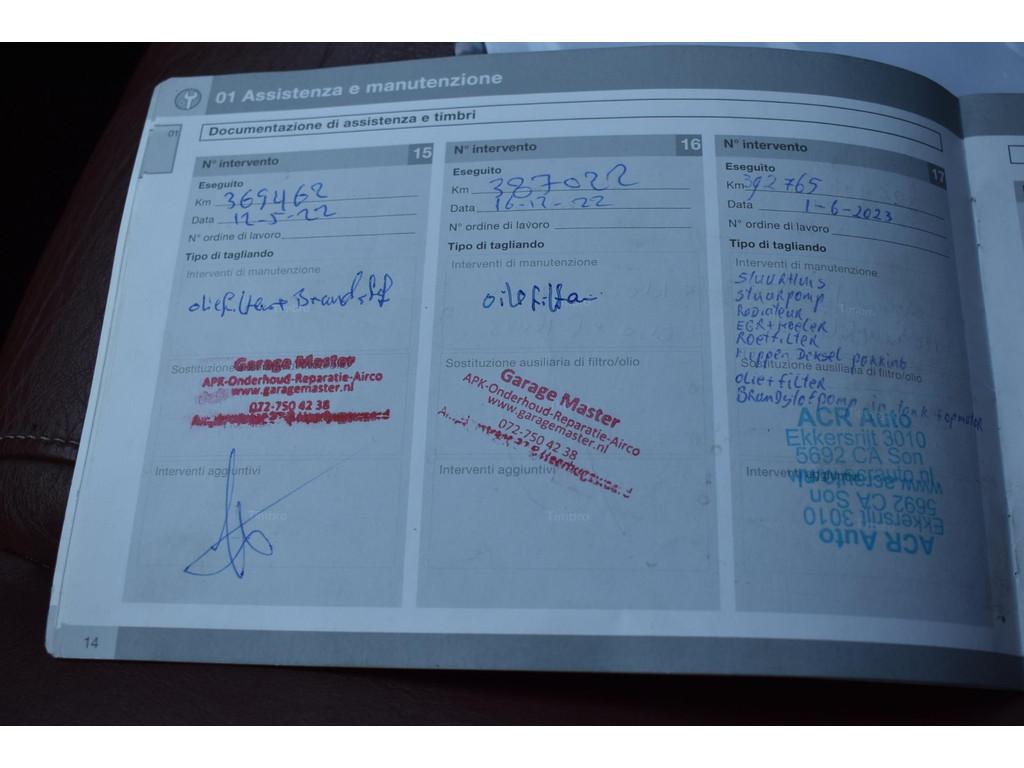 01 Assistenza e manutenzione
01
Documentazione di assistenza e timbri
N° intervento 15
Eseguito
Km 369462
Data 12-5-22
N° ordine di lavoro
Tipo di tagliando
Interventi di manutenzione
oliefilter + Brandstof
Garage Master
APK-Onderhoud-Reparatie-Airco
www.garagemaster.nl
072-750 42 38
Interventi aggiuntivi
Timbro
N° intervento 16
Eseguito
Km 387022
Data 16-12-22
N° ordine di lavoro
Tipo di tagliando
Interventi di manutenzione
Sostituzione ausiliaria di filtro/olio
Garage Master
APK-Onderhoud-Reparatie-Airco
www.garagemaster.nl
072-750 42 38
Interventi aggiuntivi
Timbro
N° intervento 17
Eseguito
Km 392765
Data 1-6-2023
N° ordine di lavoro
Tipo di tagliando
Interventi di manutenzione
stuurhuis
stuurpomp
Radiateur
EGR + Koeler
Roetfilter
Kleppen Deksel pakking
Sostituzione ausiliaria di filtro/olio
olie + filter
Brandstofpomp in tank + opmotor
ACR Auto
Ekkersrijt 3010
5692 CA Son
www.acrauto.nl
5692 CA Son
Ekkersrijt 3010
ACR Auto
14